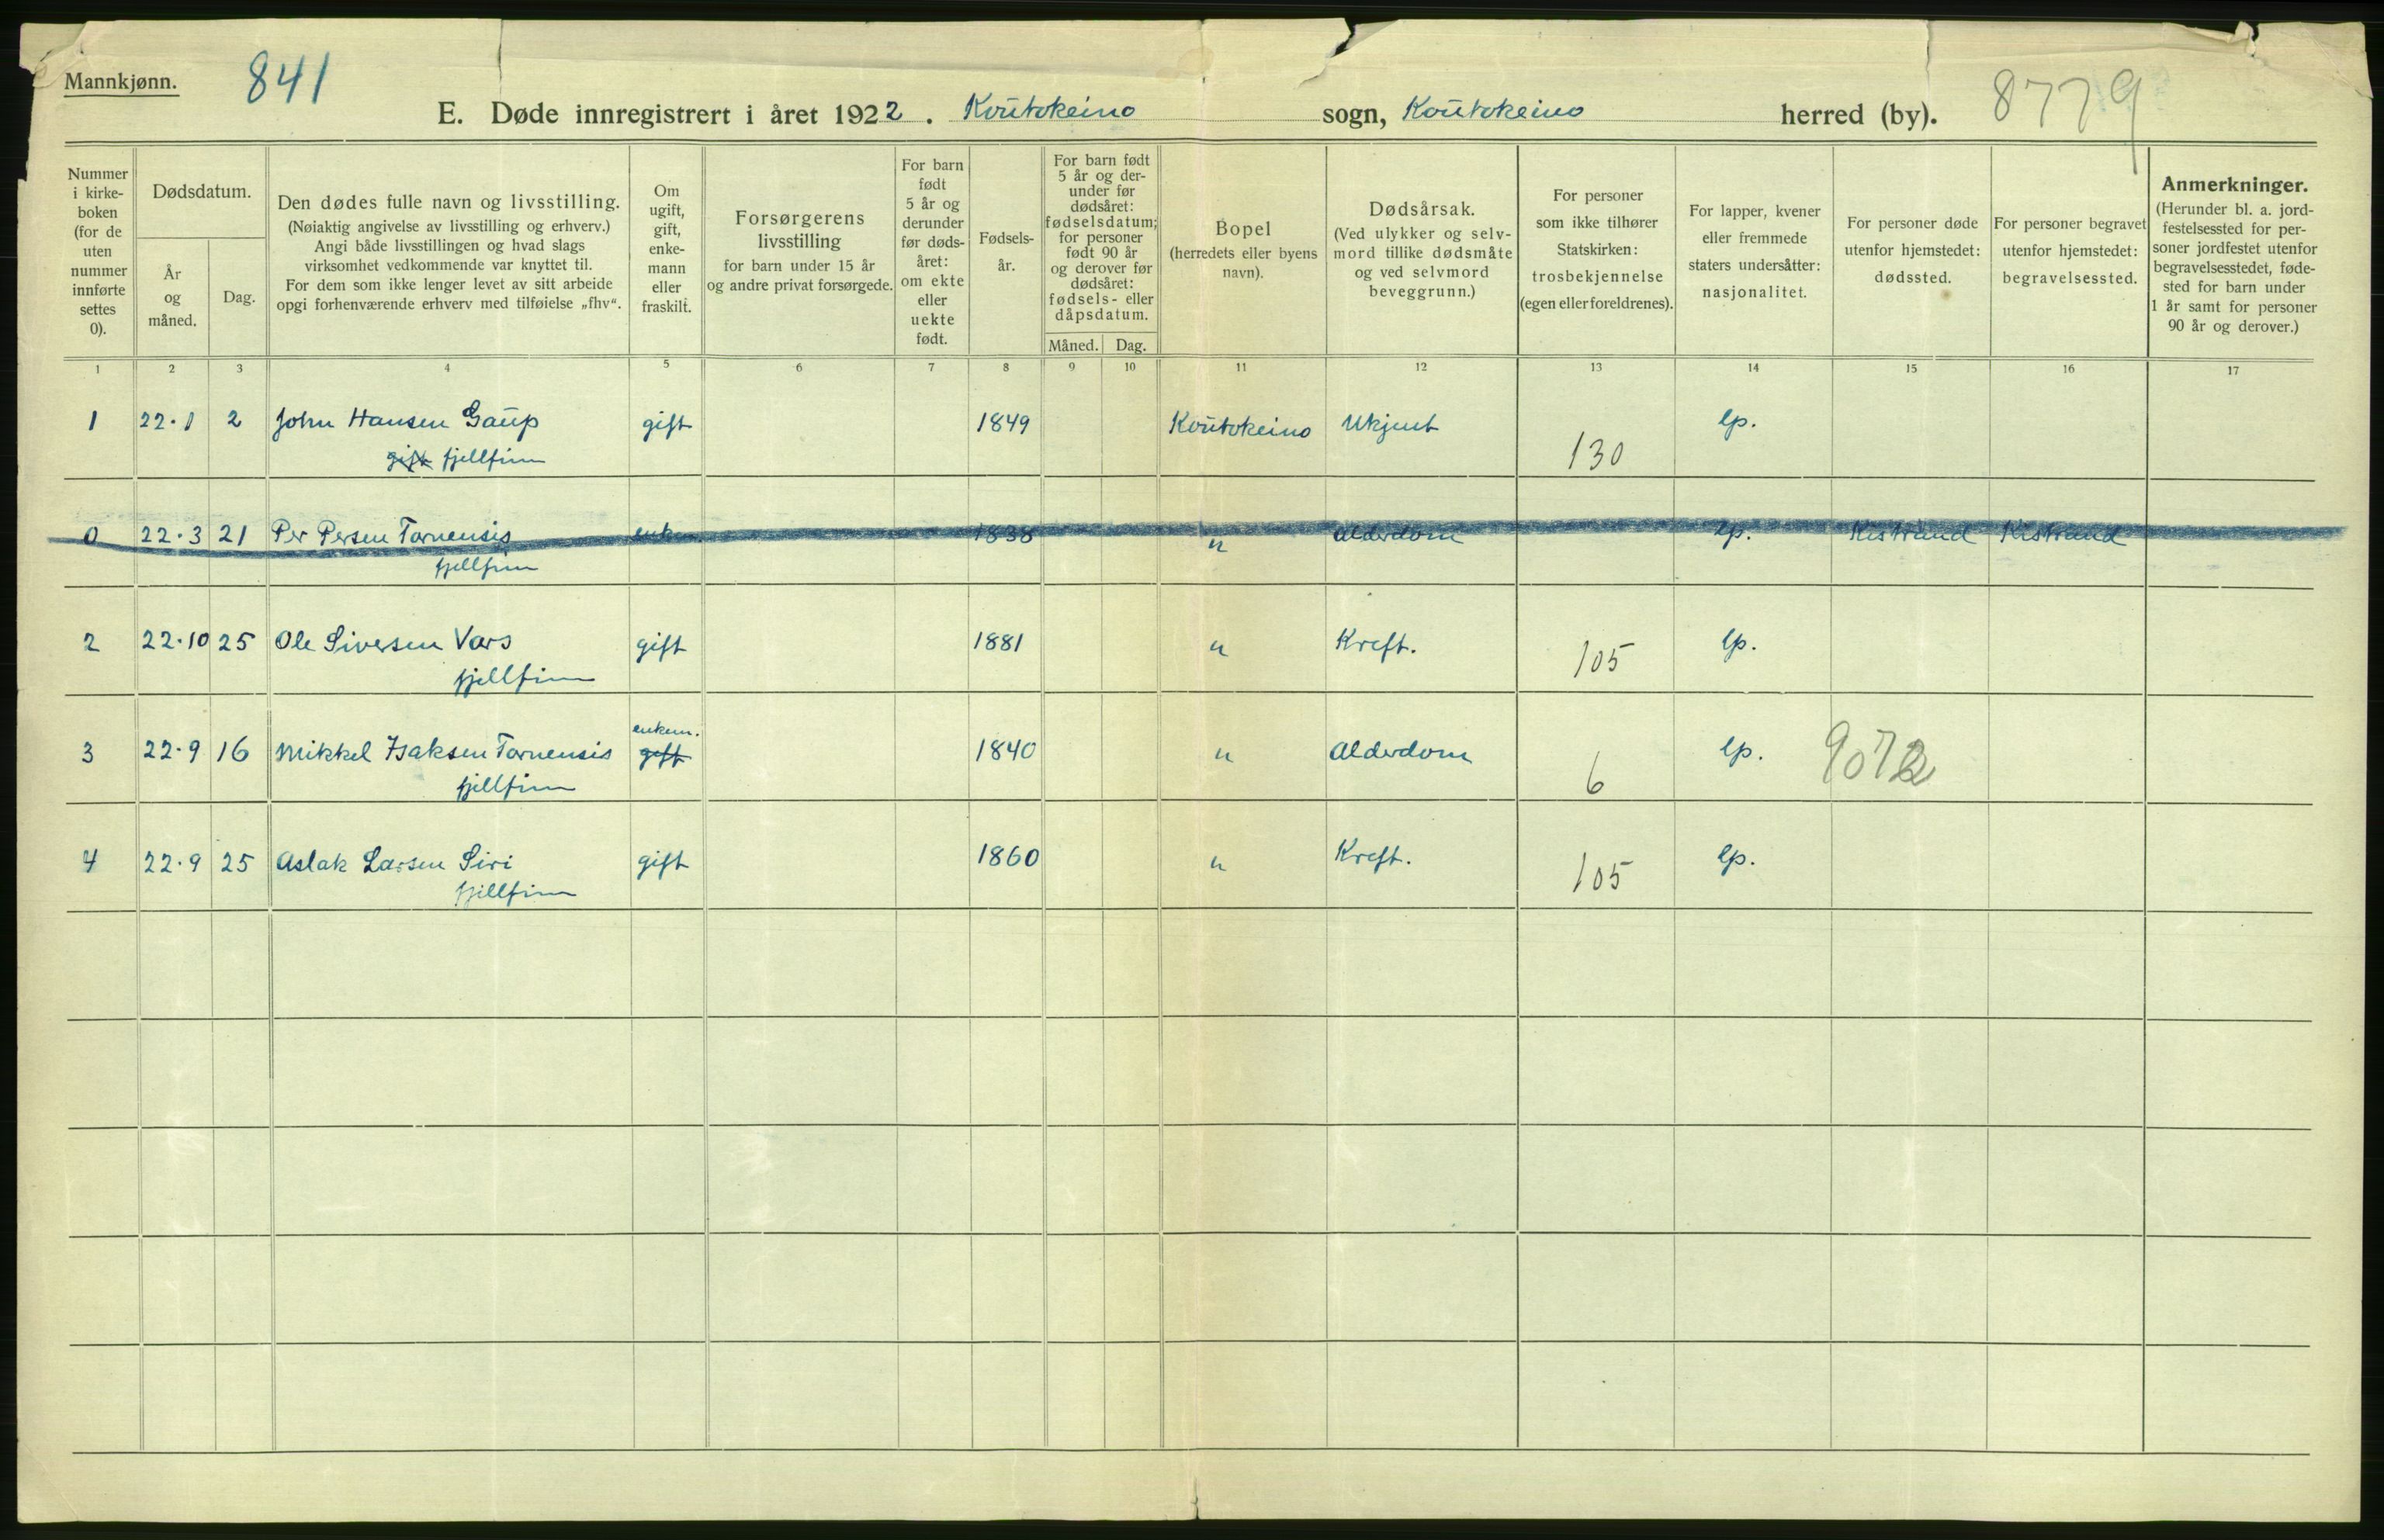 Mannkjønn.
841
E. Døde innregistrert i året 1922. Koutokeino sogn, Koutokeino herred (by).
8779
Nummer i kirke-boken (for de uten nummer innførte settes 0).
Dødsdatum.
År og måned.
Dag.
Den dødes fulle navn og livsstilling.
(Nøiaktig angivelse av livsstilling og erhverv.)
Angi både livsstillingen og hvad slags
virksomhet vedkommende var knyttet til.
For dem som ikke lenger levet av sitt arbeide
opgi forhenværende erhverv med tilføielse „fhv“.
Om ugift, gift, enke-mann eller fraskilt.
Forsørgerens
livsstilling
for barn under 15 år
og andre privat forsørgede.
For barn født 5 år og derunder før døds-året: om ekte eller uekte født.
Fødsels-
år.
For barn født
5 år og der-
under før
dødsåret:
fødselsdatum;
for personer
født 90 år
og derover før
dødsåret:
fødsels- eller
dåpsdatum.
Måned. Dag.
Bopel
(herredets eller byens
navn).
Dødsårsak.
(Ved ulykker og selv-
mord tillike dødsmåte
og ved selvmord
beveggrunn.)
For personer
som ikke tilhører
Statskirken:
trosbekjennelse
(egen eller foreldrenes).
For lapper, kvener
eller fremmede
staters undersåtter:
nasjonalitet.
For personer døde
utenfor hjemstedet:
dødssted.
For personer begravet
utenfor hjemstedet:
begravelsessted.
Anmerkninger.
(Herunder bl. a. jord-
festelsessted for per-
soner jordfestet utenfor
begravelsesstedet, føde-
sted for barn under
1 år samt for personer
90 år og derover.)
1 2 3 4 5 6 7 8 9 10 11 12 13 14 15 16 17
1 22.1 2 John Hansen Gaup gift 1849 Koutokeino Ukjent 130 lp.
gift fjellfinn
0 22.3 21 Per Persen Tornensis enkem. 1838 " Alderdom lp. Kistrand Kistrand
fjellfinn
2 22.10 25 Ole Siversen Vars gift 1881 " Kreft. 105 lp.
fjellfinn
enkem.
3 22.9 16 Mikkel Isaksen Tornensis gift 1840 " Alderdom 6 lp. 9072
fjellfinn
4 22.9 25 Aslak Larsen Siri gift 1860 " Kreft. 105 lp.
fjellfinn